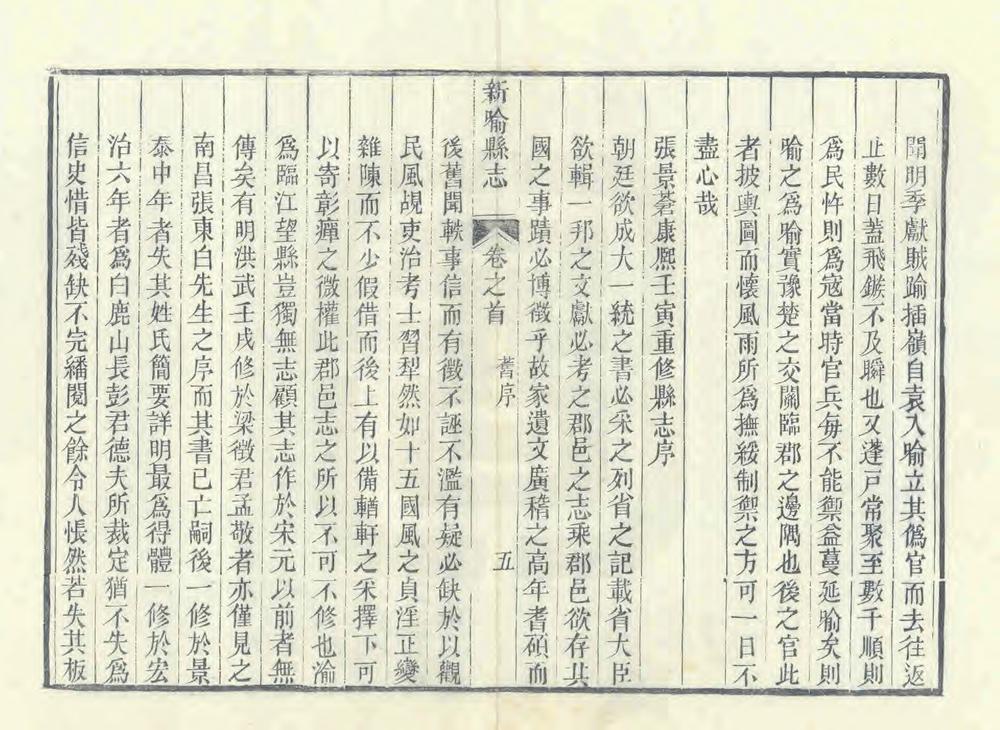 聞明季獻賊踰插嶺自袁入喻立其僞官而去往返
止數日蓋飛鏃不及瞬也又蓬戸常聚至數千順則
爲民忤則爲寇當時官兵每不能禦益蔓延喻矣則
喻之爲喻實豫楚之交關臨郡之邊隅也後之官此
者披輿圖而懷風雨所爲撫綏制禦之方可一日不
盡心哉
張景蒼康熙壬寅重修縣志序
朝廷欲成大一統之書必采之列省之記載省大臣
欲輯一邦之文獻必考之郡邑之志乘郡邑欲存其
國之事蹟必博徵乎故家遺文廣稽之高年耆碩而
新喻縣志 卷之首 舊序 五
後舊聞軼事信而有徵不誣不濫有疑必缺於以觀
民風覘吏治考士習犁然如十五國風之貞淫正變
雜陳而不少假借而後上有以備輶軒之采擇下可
以寄彰癉之微權此郡邑志之所以不可不修也渝
爲臨江望縣豈獨無志顧其志作於宋元以前者無
傳矣有明洪武壬戌修於梁徵君孟敬者亦僅見之
南昌張東白先生之序而其書已亡嗣後一修於景
泰中年者失其姓氏簡要詳明最爲得體一修於宏
治六年者爲白鹿山長彭君德夫所裁定猶不失爲
信史惜皆殘缺不完繙閱之餘令人悵然若失其板